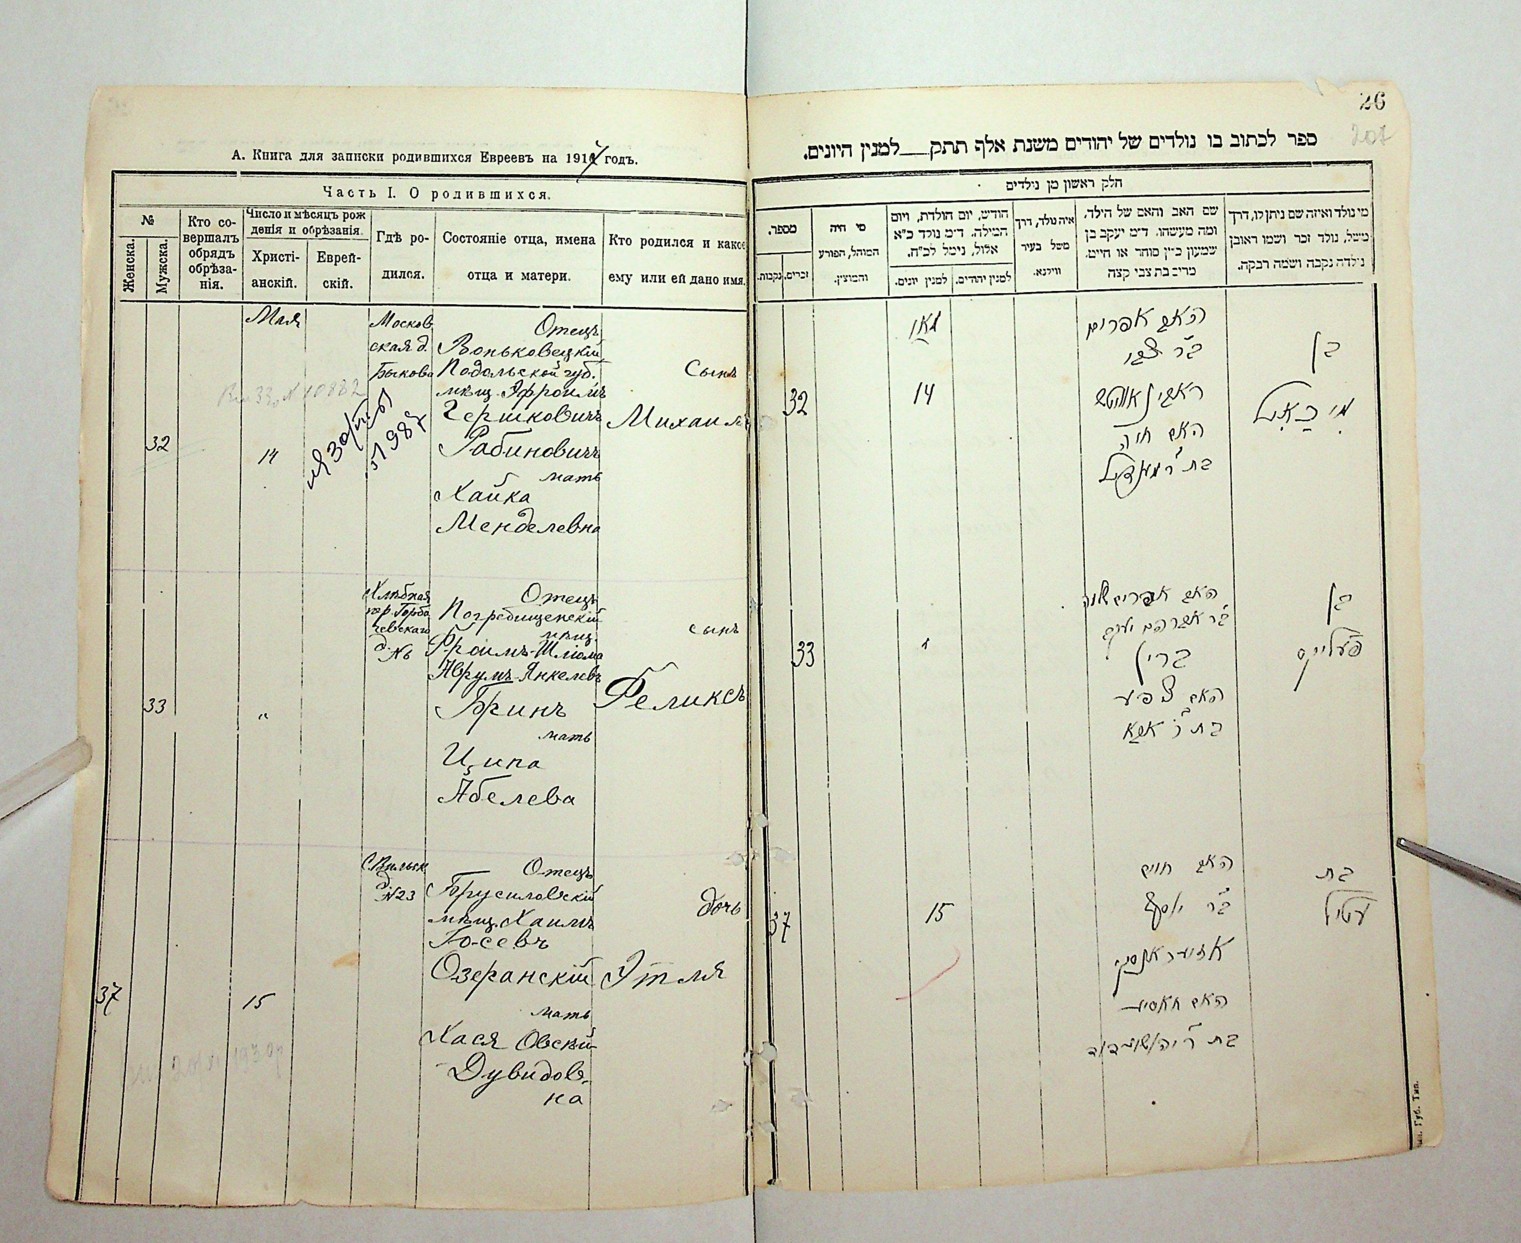 А. Книга для записки родившихся Евреевъ на 1917 годъ.
Часть I. О родившихся.
№
Женска.
Мужска.
Кто со-
вершалъ
обрядъ
обрѣза-
нія.
Число и мѣсяцъ рож
денія и обрѣзанія.
Христі-
анскій.
Еврей-
скій.
Гдѣ ро-
дился.
Состояніе отца, имена
отца и матери.
Кто родился и какое
ему или ей дано имя.
32
Мая
14
Москов
ская д.
Быкова
Отецъ
Воньковецкій
Подольской губ.
мѣщ. Эфроимъ
Гершковичъ
Рабиновичъ
мать
Хайка
Менделевна
Сынъ
Михаилъ
33
"
Хлѣбная
Горба
чевскаго
д. №
Отецъ
Погребищенскій
мѣщ.
Фроимъ-Шлома
Аврумъ-Янкелевъ
Гринъ
мать
Ципа
Абелева
сынъ
Феликсъ
37
15
д
№23
Отецъ
Брусиловскій
мѣщ. Хаимъ
Іо-севъ
Озеранскій
мать
Хася Овсѣй-
Дувидов-
на
дочь
Этля
26
207
ספר לכתוב בו נולדים של יהודים משנת אלף תתק___למנין היונים.
חלק ראשון מן נולדים
מספר.
זכרים.
נקבות.
מי היה
המוהל, הפורע
והמוצץ.
חודש, יום הולדת, ויום
המילה. ד״מ נולד כ״א
אלול, נימל לכ״ח.
למנין יונים.
למנין יהודים.
איה נולד, דרך
משל בעיר
ווילנא.
שם האב והאם של הילד,
ומה מעשהו. ד״מ יעקב בן
שמעון כ״ץ סוחר או חייט.
מרים בת צבי קצה
מי נולד ואיזה שם ניתן לו, דרך
משל, נולד זכר ושמו ראובן
נילדה נקבה ושמה רבקה.
32
מאי
14
האב אפרים
ב״ר צבי
ראבינאוויטש
האם חיה
בת ר׳ מענדיל
בן
מיכאל
33
האב אפרים שלמה
ב״ר אברהם יעקב
גרין
האם ציפע
בת ר׳ אבא
בן
פעליקס
37
15
האב חיים
ב״ר יוסף
אזעראנסקי
האם חאסיע
בת
עטיל